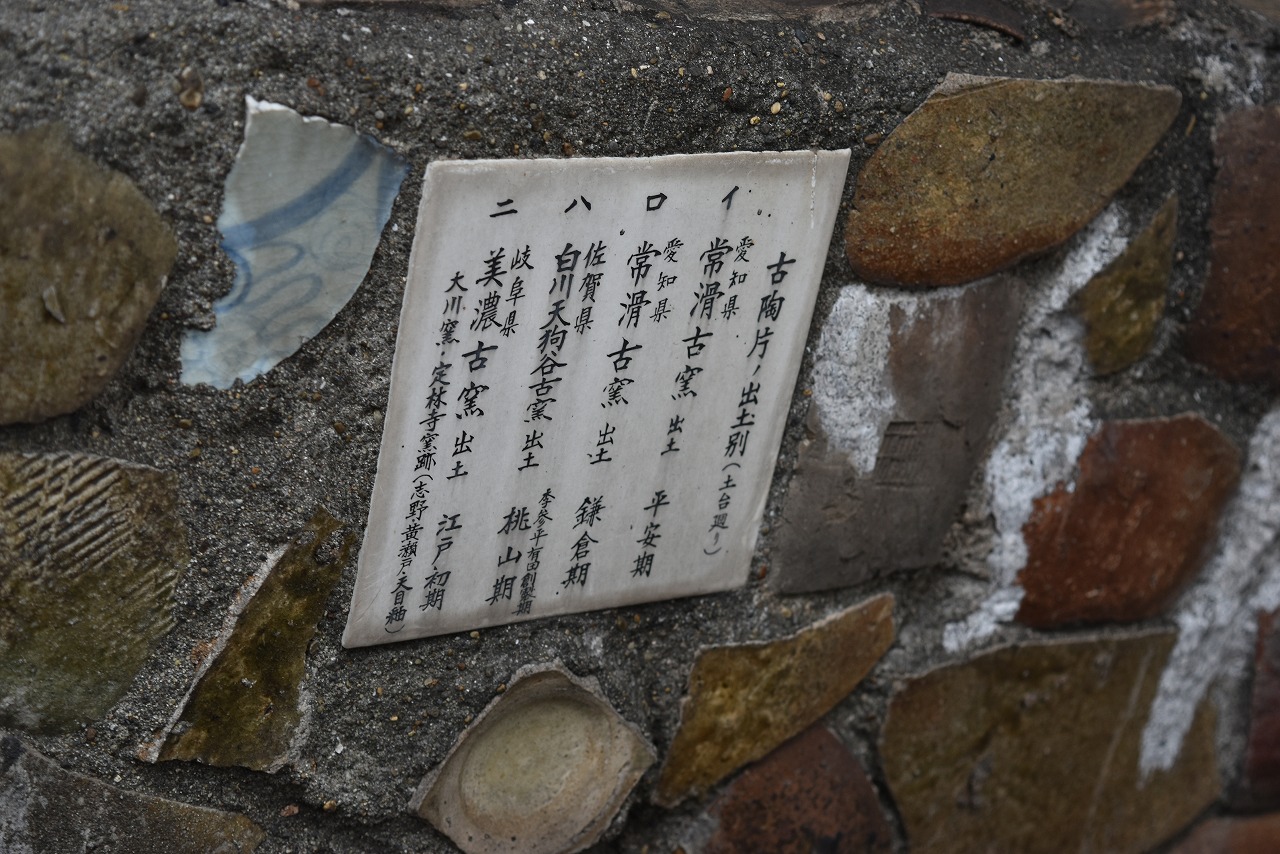 古陶片ノ出土別(土台廻リ)
イ 愛知県
常滑古窯出土 平安期
ロ 愛知県
常滑古窯出土 鎌倉期
ハ 佐賀県
白川天狗谷古窯出土 李参平有田創業期
桃山期
ニ 岐阜県
美濃古窯出土 江戸初期
大川窯・定林寺窯跡(志野・黄瀬戸・天目釉)